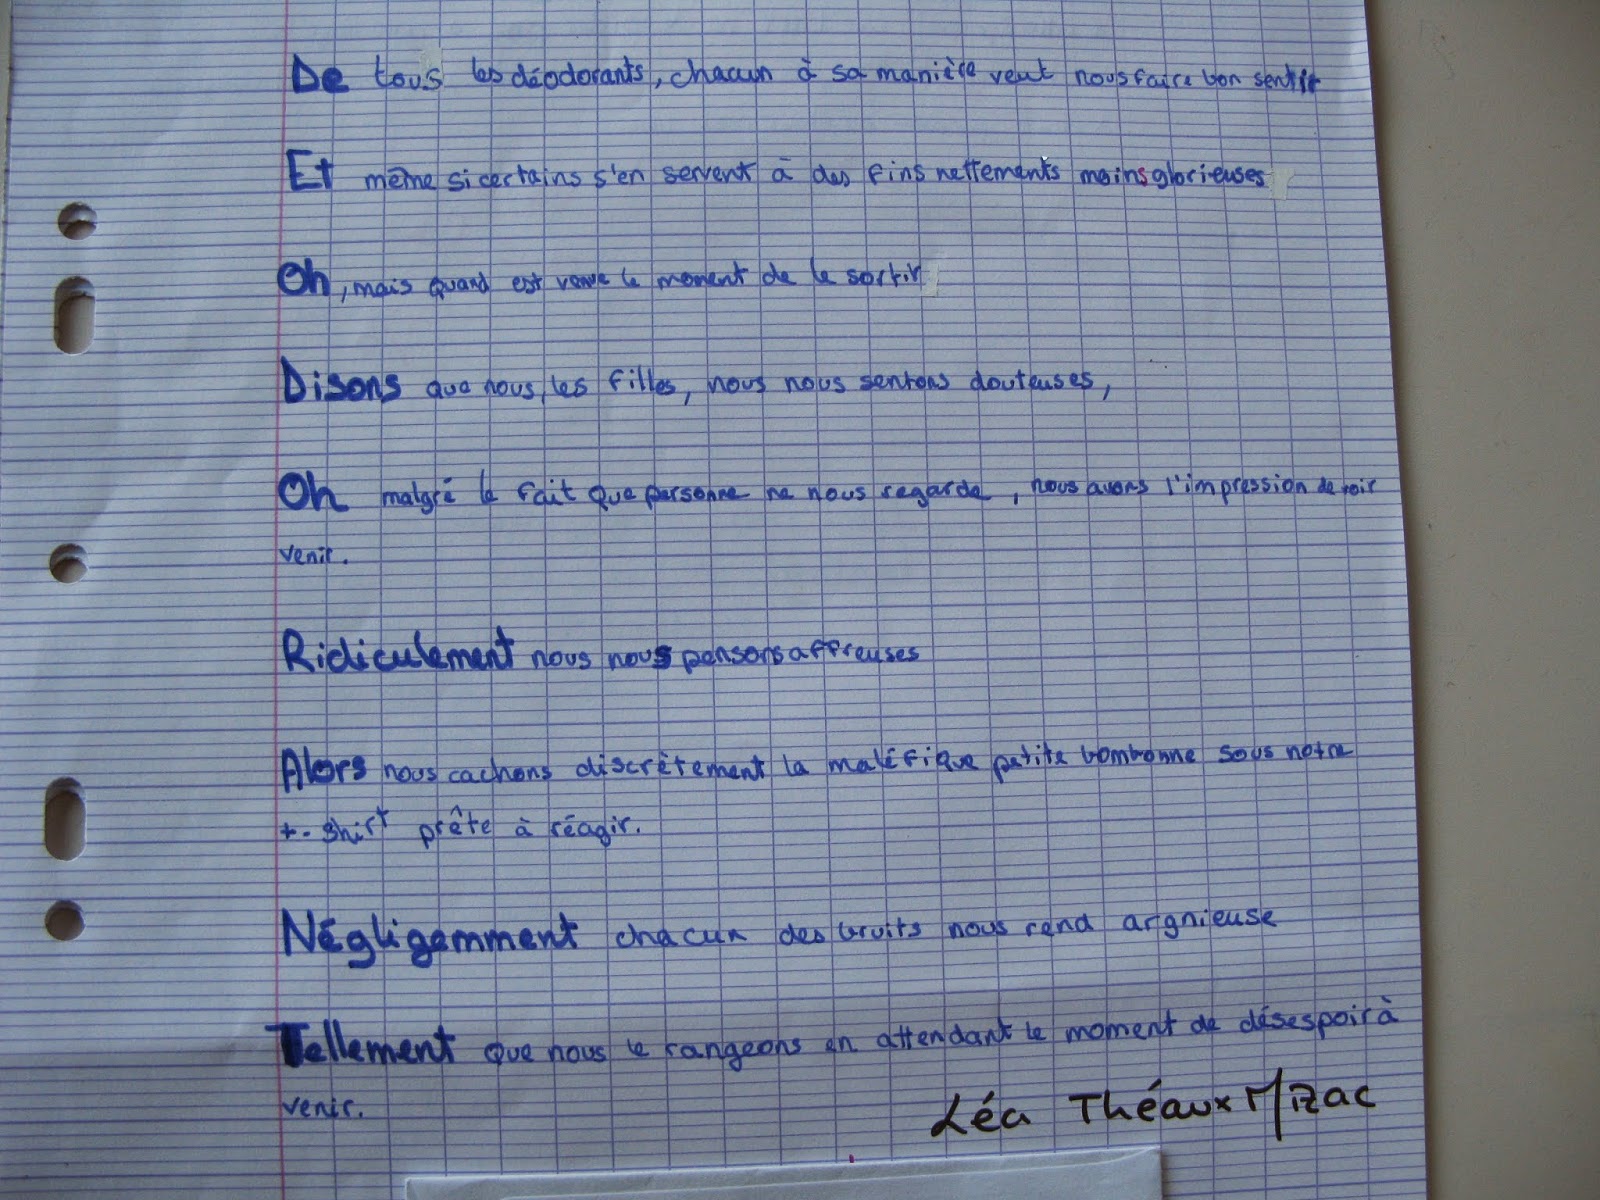 De tous les déodorants, chacun à sa manière veut nous faire bon sentir
Et même si certains s'en servent à des fins nettements moins glorieuses
Oh, mais quand est venue le moment de le sortir
Disons que nous, les filles, nous nous sentons douteuses,
Oh malgré le fait que personne ne nous regarde, nous avons l'impression de voir
venir.
Ridiculement nous nous pensons affreuses
Alors nous cachons discrètement la maléfique petite bombonne sous notre
t-shirt prête à réagir.
Négligemment chacun des bruits nous rend argnieuse
Tellement que nous le rangeons en attendant le moment de désespoir à
venir.
Léa Théaux Mizac